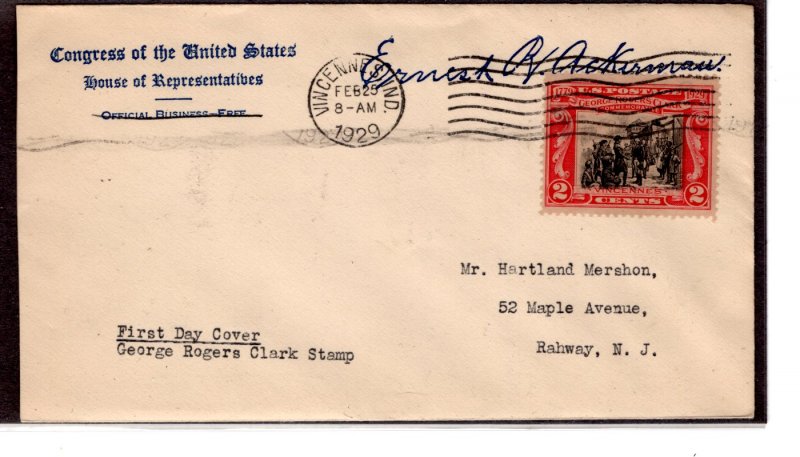 Congress of the United States
House of Representatives
Official Business-Free
VINCENNES, IND.
FEB 25
8-AM
1929
Ernest R. Ackerman.
1779 U.S. POSTAGE 1929
GEORGE ROGERS CLARK
COMMEMORATIVE
VINCENNES
2 CENTS 2
Mr. Hartland Mershon,
52 Maple Avenue,
Rahway, N. J.
First Day Cover
George Rogers Clark Stamp